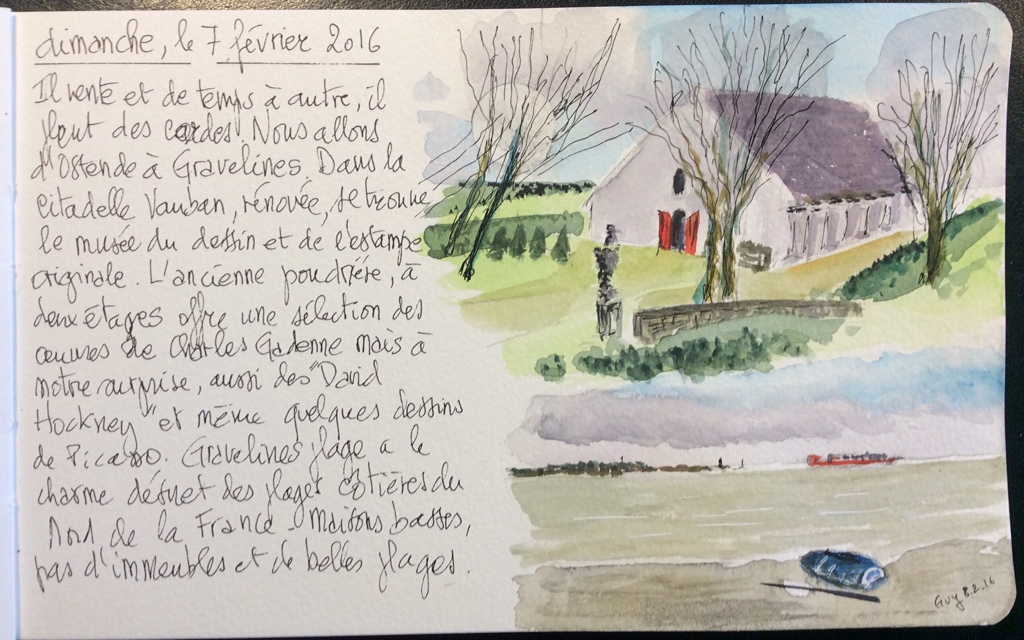 dimanche, le 7 février 2016
Il vente et de temps à autre, il
pleut des cordes. Nous allons
d'Ostende à Gravelines. Dans la
citadelle Vauban, rénovée, se trouve
le musée du dessin et de l'estampe
originale. L'ancienne poudrière, à
deux étages offre une sélection des
œuvres de Charles Gadenne mais à
notre surprise, aussi des "David
Hockney" et même quelques dessins
de Picasso. Gravelines plage a le
charme désuet des plages côtières du
Nord de la France. Maisons basses,
pas d'immeubles et de belles plages.
Guy 8.2.16